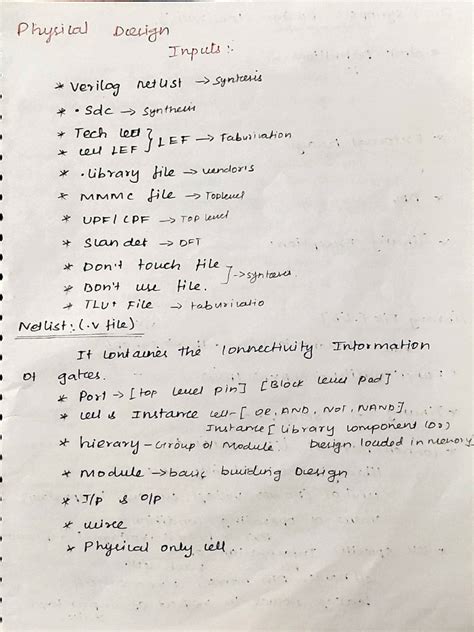 Physical Design
Inputs:-
* Verilog netlist → Syntesis
* .Sdc → Synthesis
* Tech LEF
* cell LEF } LEF → Faburivation
* .library file → vendors
* MMMC file → Toplevel
* UPF/CPF → TOP level
* Scan def → DFT
* Don't touch file
* Don't use file. ] →syntesis
* TLU+ File → faburicatio
Netlist:(.v file)
It containes the Connectivity Information
of gates.
* Port → [top level pin] [Block level pad]
* cell & Instance cell-[OR, AND, NOT, NAND],
Instance [Library component (or)
* hierary - Group of Module. Design loaded in memory
* Module → basic building Design
* I/P & O/P
* wire
* Physical only cell.